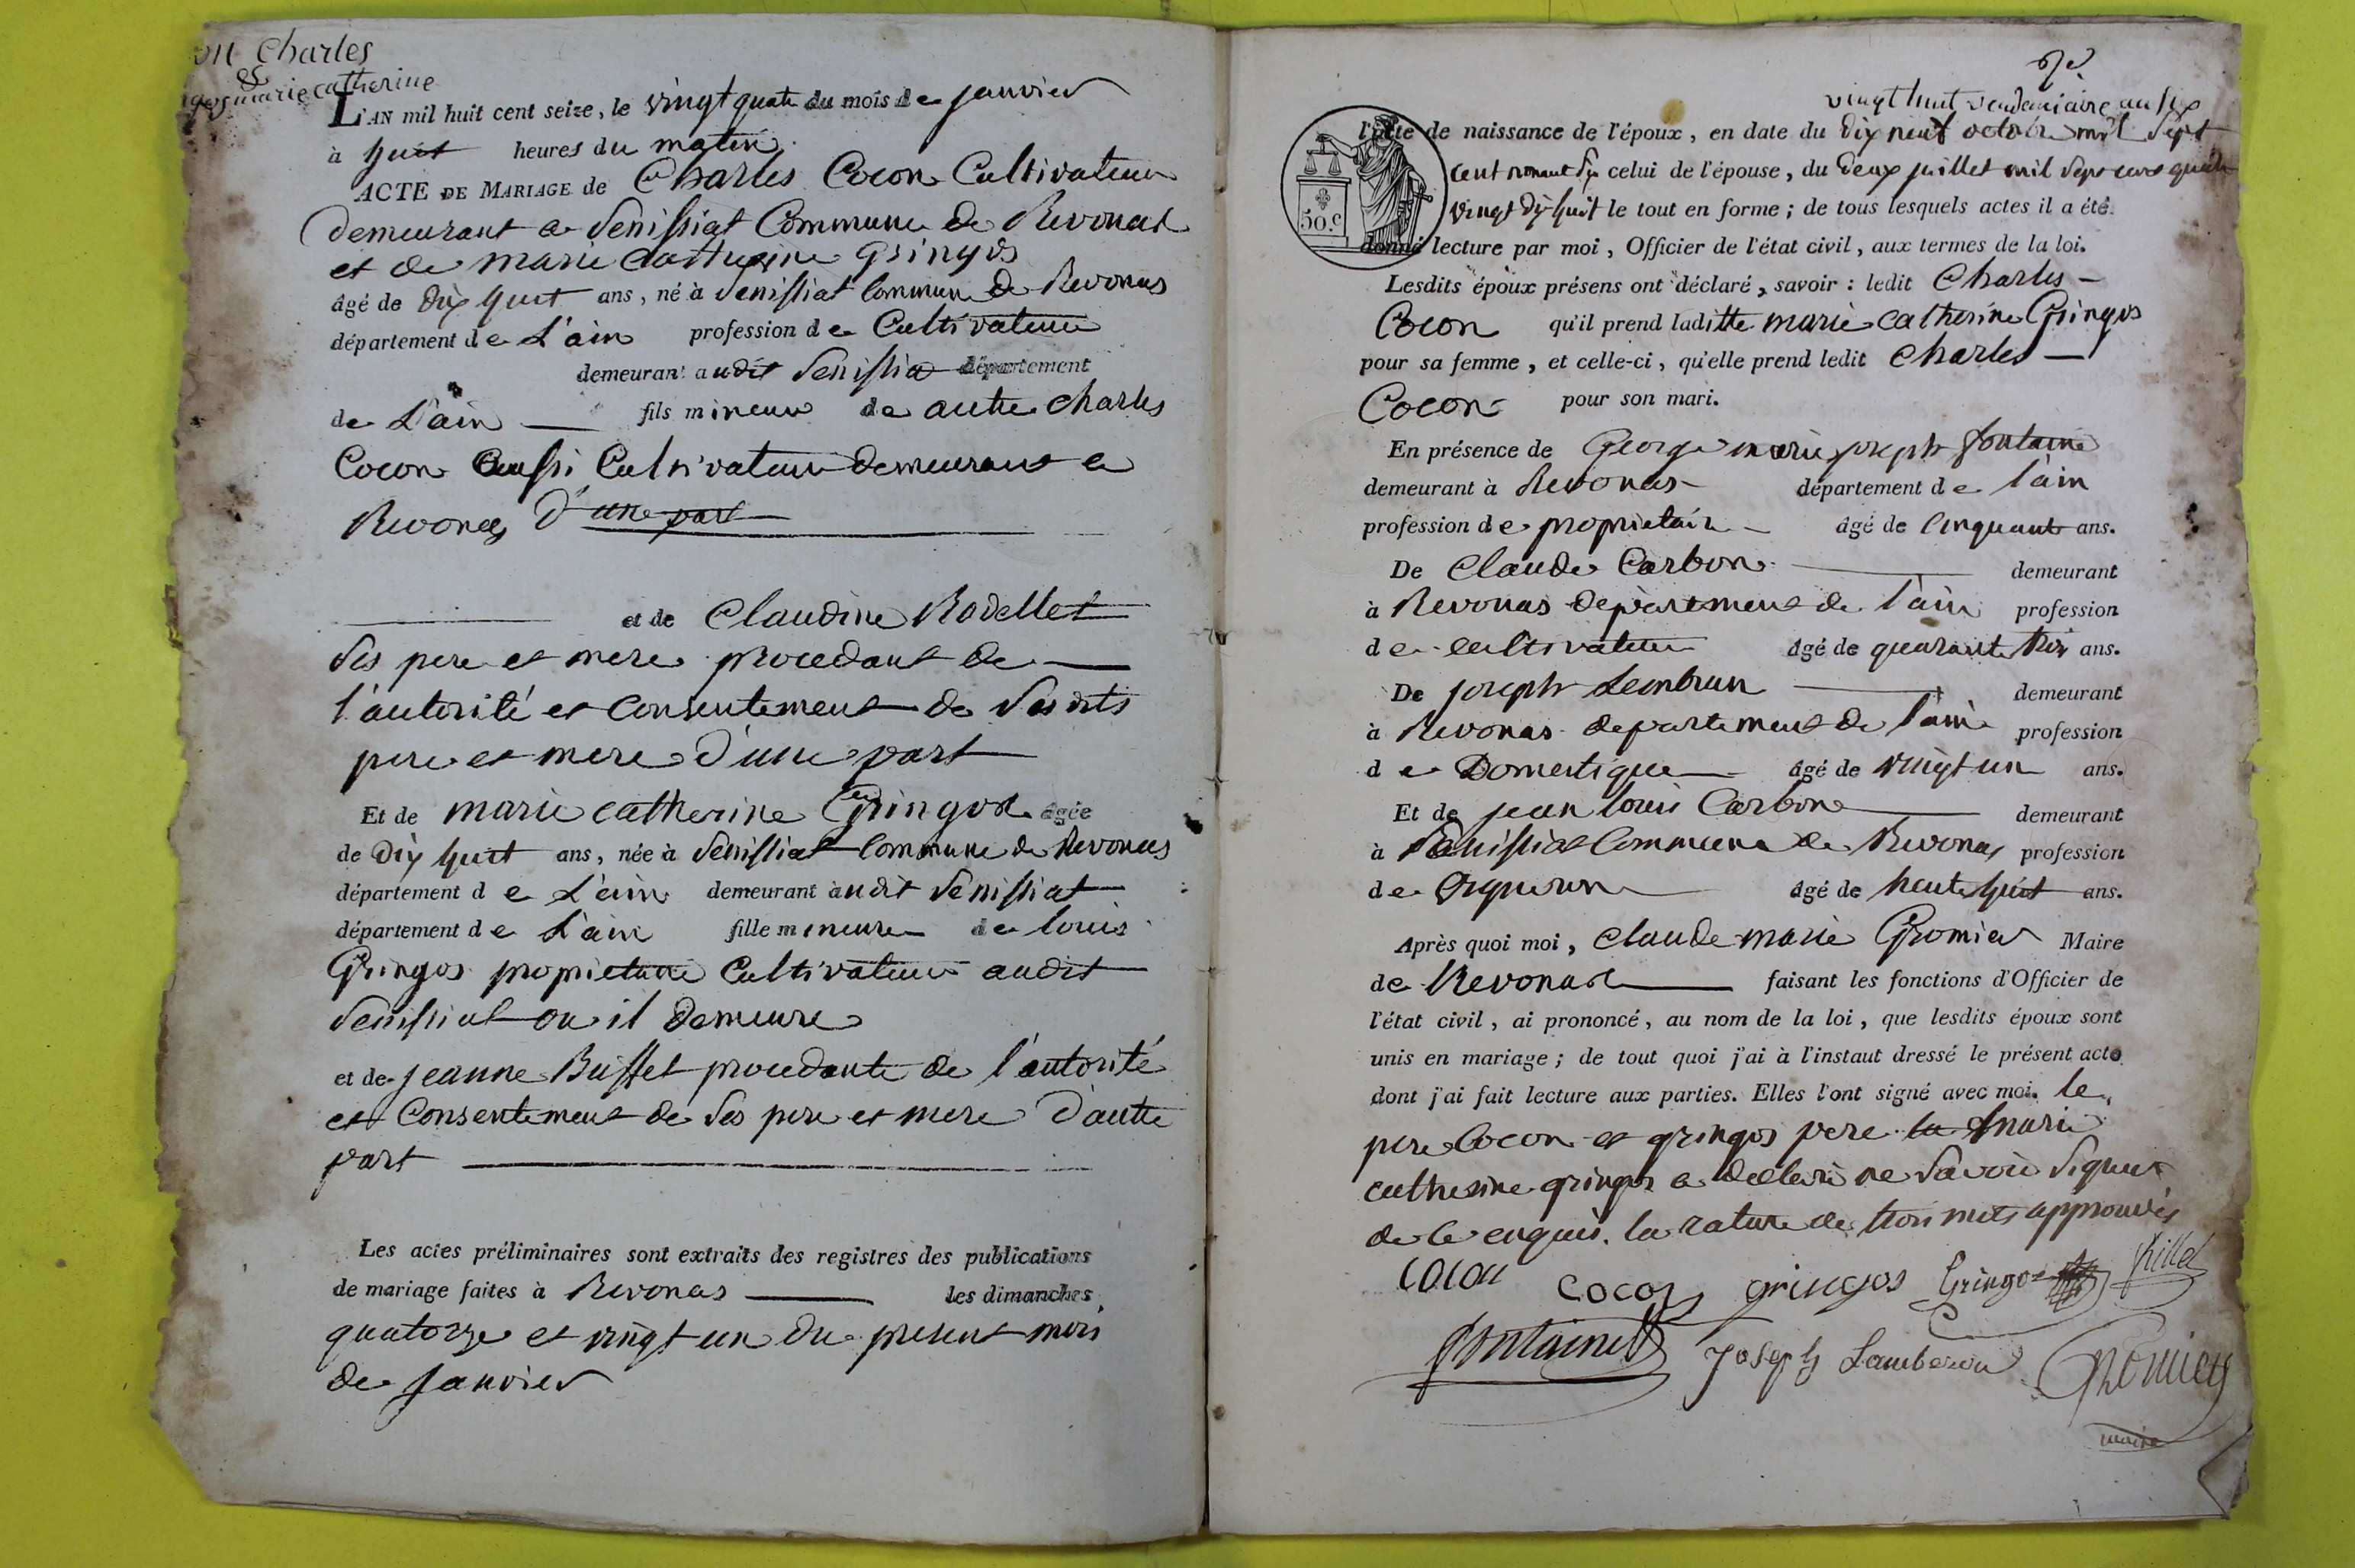 on Charles
&
gos marie catherine
L'AN mil huit cent seize, le vingt quatre du mois de janvier
à huit heures du matin.
ACTE DE MARIAGE de Charles Cocon Cultivateur
demeurant a Senissiat Commune de Revonas
et de marie Catherine Gringos
âgé de dix huit ans, né à Senissiat Commune de Revonas
département de L'ain profession de Cultivateur
demeurant audit Senissia département
de L'ain fils mineur de autre Charles
Cocon Aussi Cultivateur demeurant a
Revonas d'une part
et de Claudine Rodellet
Ses pere et mere procedant de
l'autorité et Consentement de Ses dits
pere et mere d'une part
Et de marie catherine Gringos âgée
de Dix huit ans, née à Senissiat Commune de Revonas
département de L'ain demeurant audit Senissiat
département de L'ain fille mineure de louis
Gringos proprietaire Cultivateur audit
Senissiat ou il demeure
et de jeanne Buffet procedante de l'autorité
et Consentement de Ses pere et mere d'autre
part
Les actes préliminaires sont extraits des registres des publications
de mariage faites à Revonas les dimanches
quatorze et vingt un du present mois
de janvier
vingt huit vendemiaire an six
l'acte de naissance de l'époux, en date du dix neuf octobre mil Sept
50.c
Cent nonant six celui de l'épouse, du deux juillet mil Sept cent quatre
vingt dix huit le tout en forme; de tous lesquels actes il a été
donné lecture par moi, Officier de l'état civil, aux termes de la loi.
Lesdits époux présens ont déclaré, savoir: ledit Charles
Cocon qu'il prend laditte marie catherine Gringos
pour sa femme, et celle-ci, qu'elle prend ledit Charles
Cocon pour son mari.
En présence de George marie joseph fontaine
demeurant à Revonas département de l'ain
profession de proprietaire âgé de Cinquante ans.
De Claude Carbon demeurant
à Revonas departement de l'ain profession
de cultivateur âgé de quarante trois ans.
De joseph Lembrun demeurant
à Revonas departement de l'ain profession
de Domestique âgé de vingt un ans.
Et de jean louis Carbon demeurant
à Senissiat Commune de Revonas profession
de Vigneron âgé de trente huit ans.
Après quoi moi, Claude marie Gromier Maire
de Revonas faisant les fonctions d'Officier de
l'état civil, ai prononcé, au nom de la loi, que lesdits époux sont
unis en mariage; de tout quoi j'ai à l'instaut dressé le présent acte
dont j'ai fait lecture aux parties. Elles l'ont signé avec moi. le
pere Cocon et gringos pere la marie
catherine gringos a declaré ne Savoir Signer
de ce enquis. la rature de trois mots approuvés
Cocon Cocon gringos Gringos
fontaine Joseph Lamberon Gromier
maire